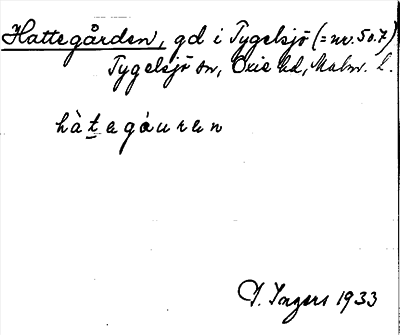 Hattegården, gd i Tygelsjö (= nr. 50.7)
Tygelsjö sn, Oxie hd, Malm. l.
hàtegáuren
I. Ingers 1933